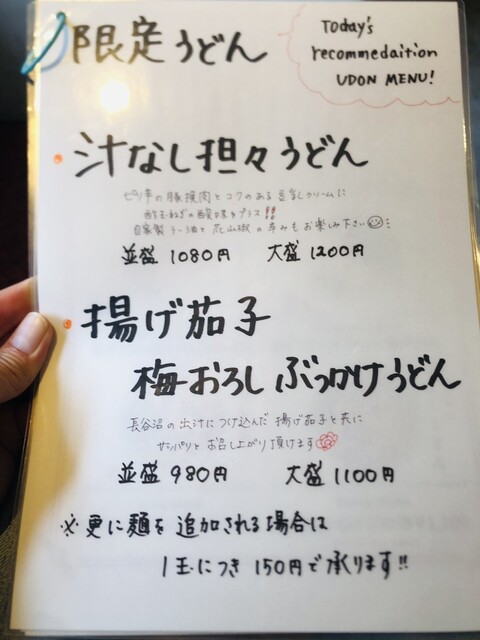 限定うどん
Today's
recommedaition
UDON MENU!
汁なし担々うどん
ピリ辛の豚挽肉とコクのある豆乳クリームに
酢玉ねぎの酸味をプラス!!
自家製ラー油と花山椒の辛みもお楽しみ下さい
並盛 1080円 大盛 1200円
揚げ茄子
梅おろしぶっかけうどん
長谷沼の出汁につけ込んだ揚げ茄子と共に
サッパリとお召し上がり頂けます
並盛 980円 大盛 1100円
※更に麺を追加される場合は
1玉につき150円で承ります!!